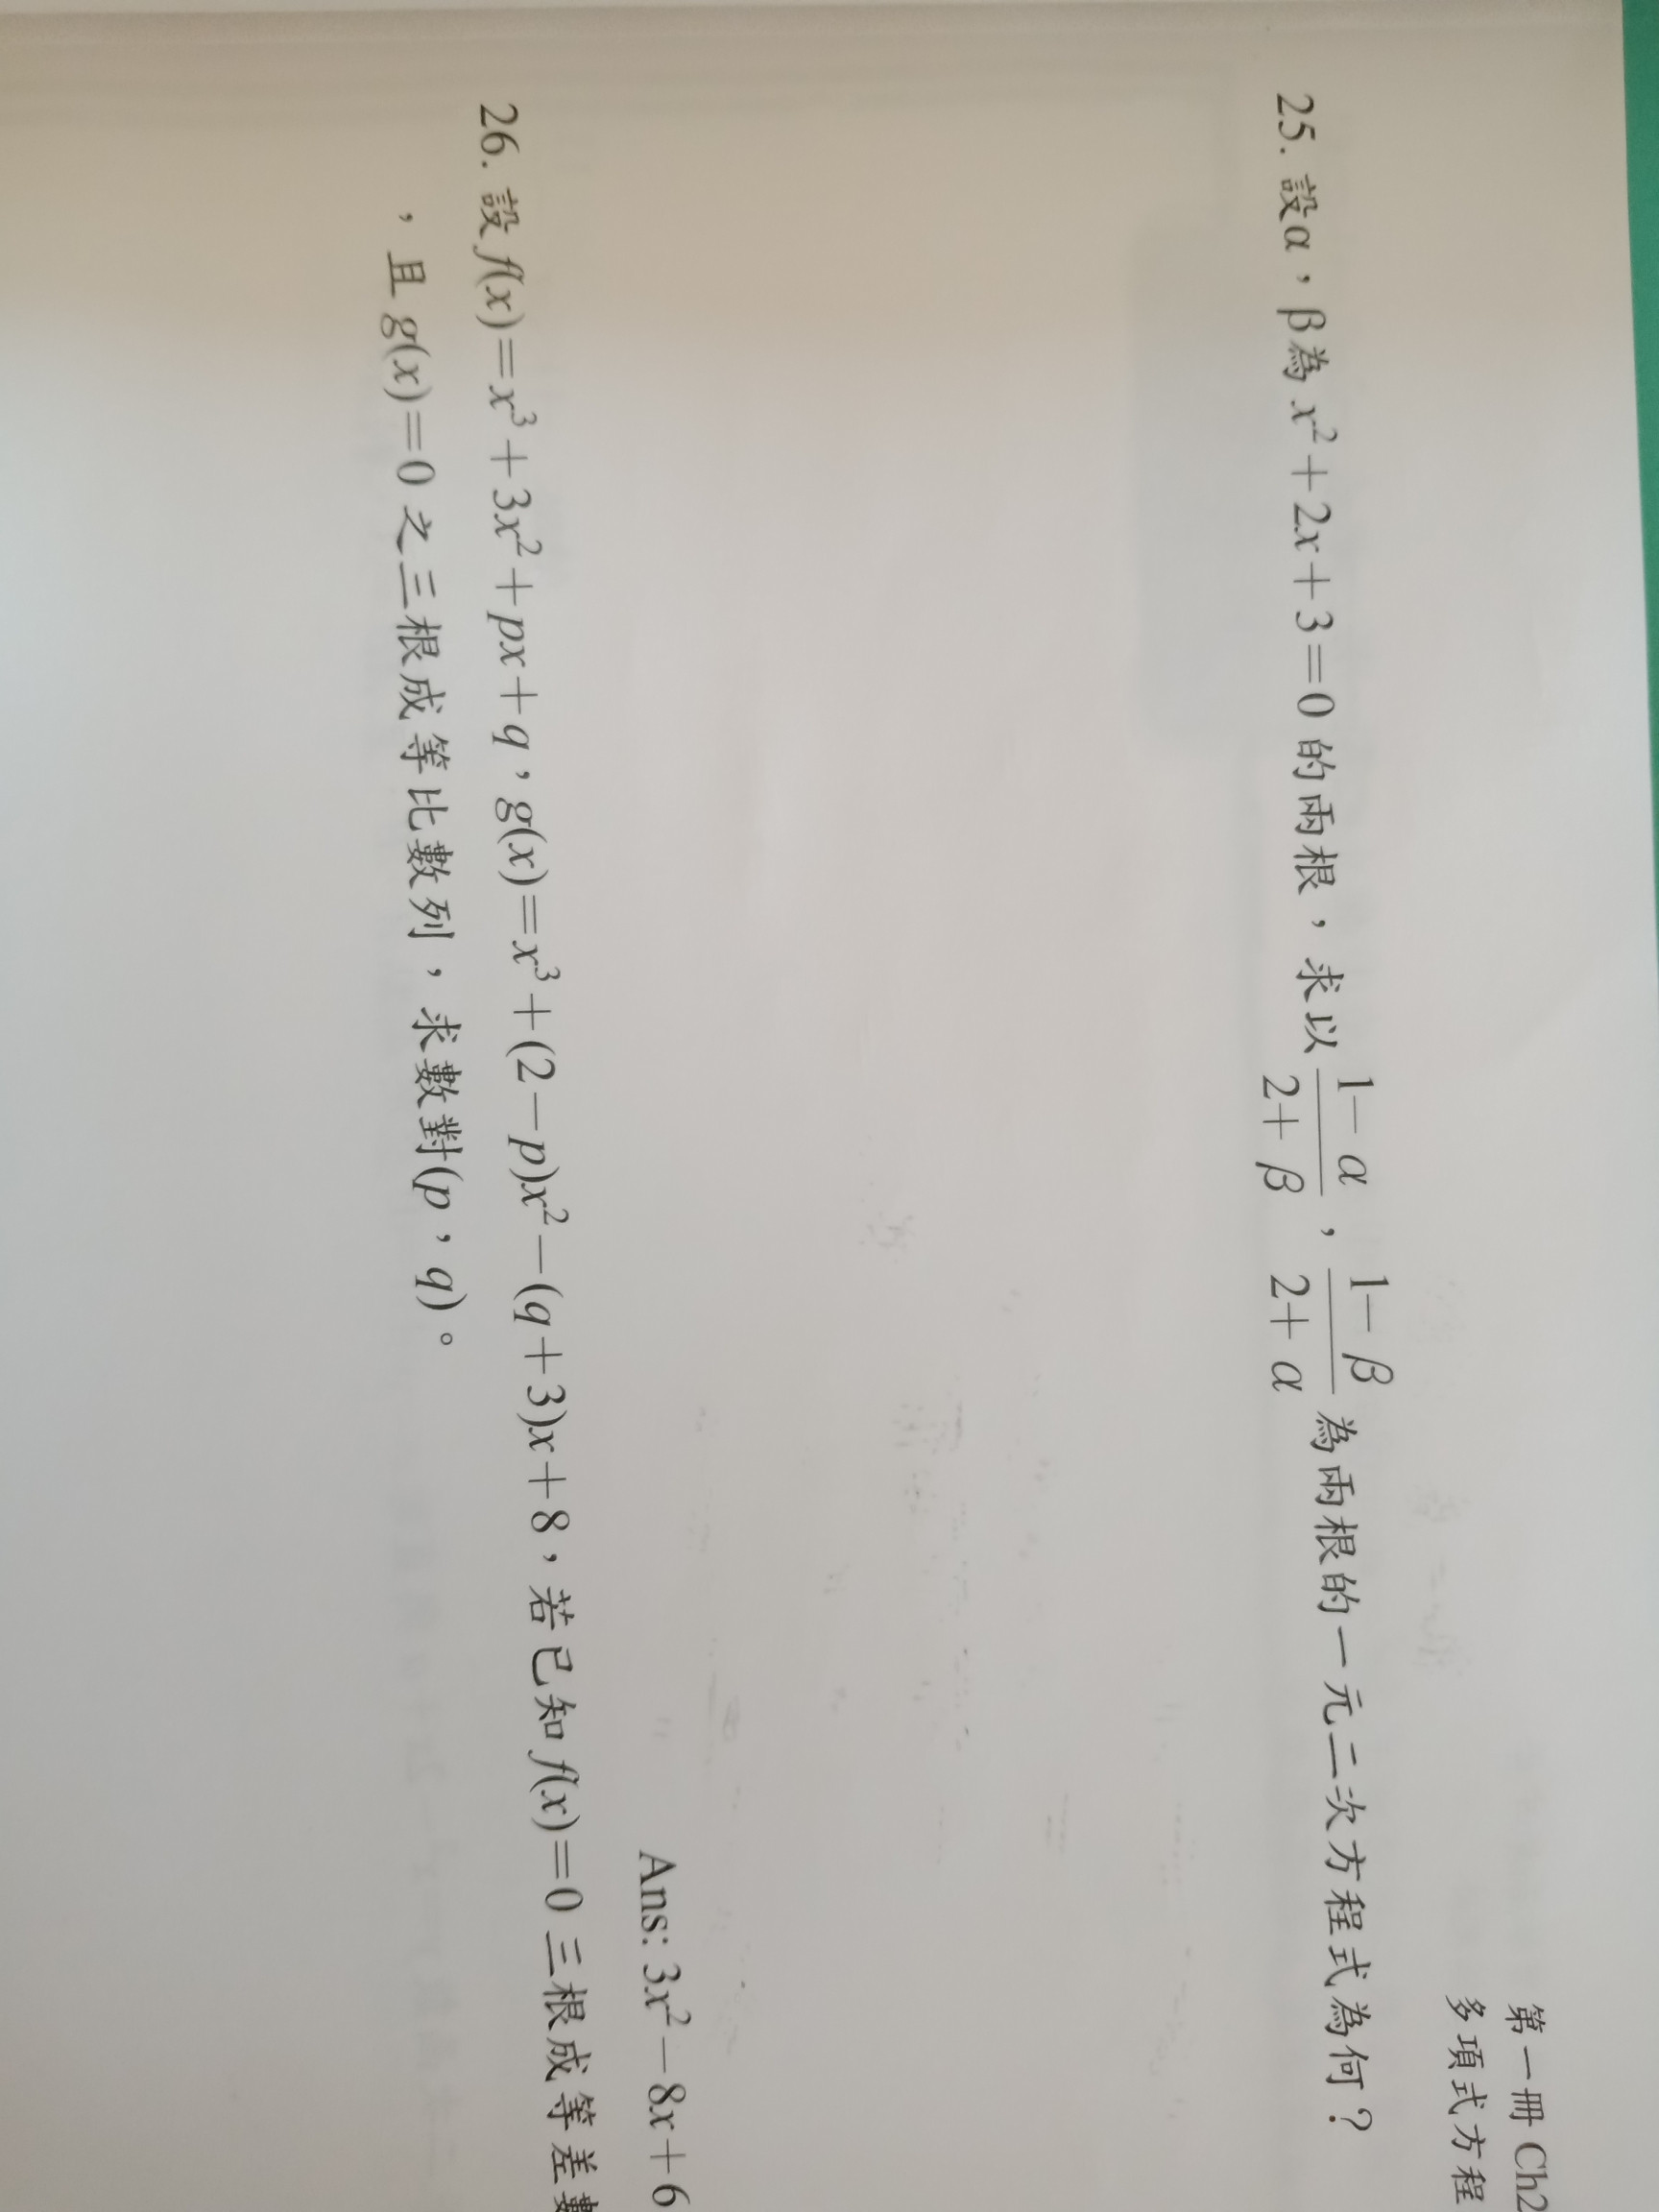 第一冊 Ch2
多項式方程
25. 設α，β為 x²＋2x＋3＝0 的兩根，求以 (1－α)/(2＋β) ， (1－β)/(2＋α) 為兩根的一元二次方程式為何？
Ans: 3x²－8x＋6
26. 設 f(x)＝x³＋3x²＋px＋q，g(x)＝x³＋(2－p)x²－(q＋3)x＋8，若已知 f(x)＝0 三根成等差數
，且 g(x)＝0 之三根成等比數列，求數對(p，q)。